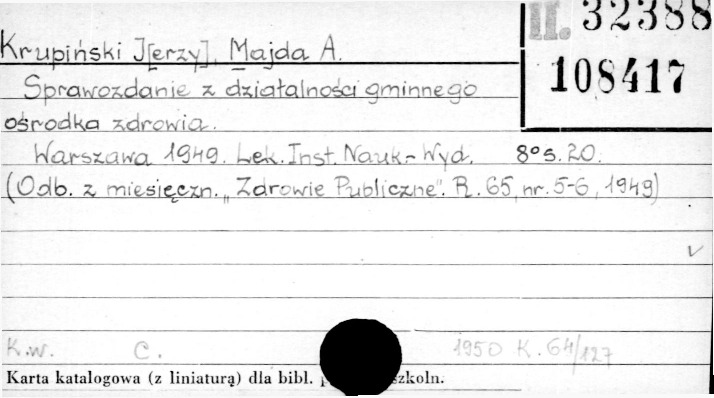 II. 32388
Krupiński J[erzy], Majda A.
108417
Sprawozdanie z działalności gminnego
ośrodka zdrowia.
Warszawa 1949. Lek. Inst. Nauk.-Wyd. 8° s. 20.
(Odb. z miesięczn. „Zdrowie Publiczne". R. 65, nr. 5-6, 1949)
v
K.w. C. 1950 K. 64/127
Karta katalogowa (z liniaturą) dla bibl.